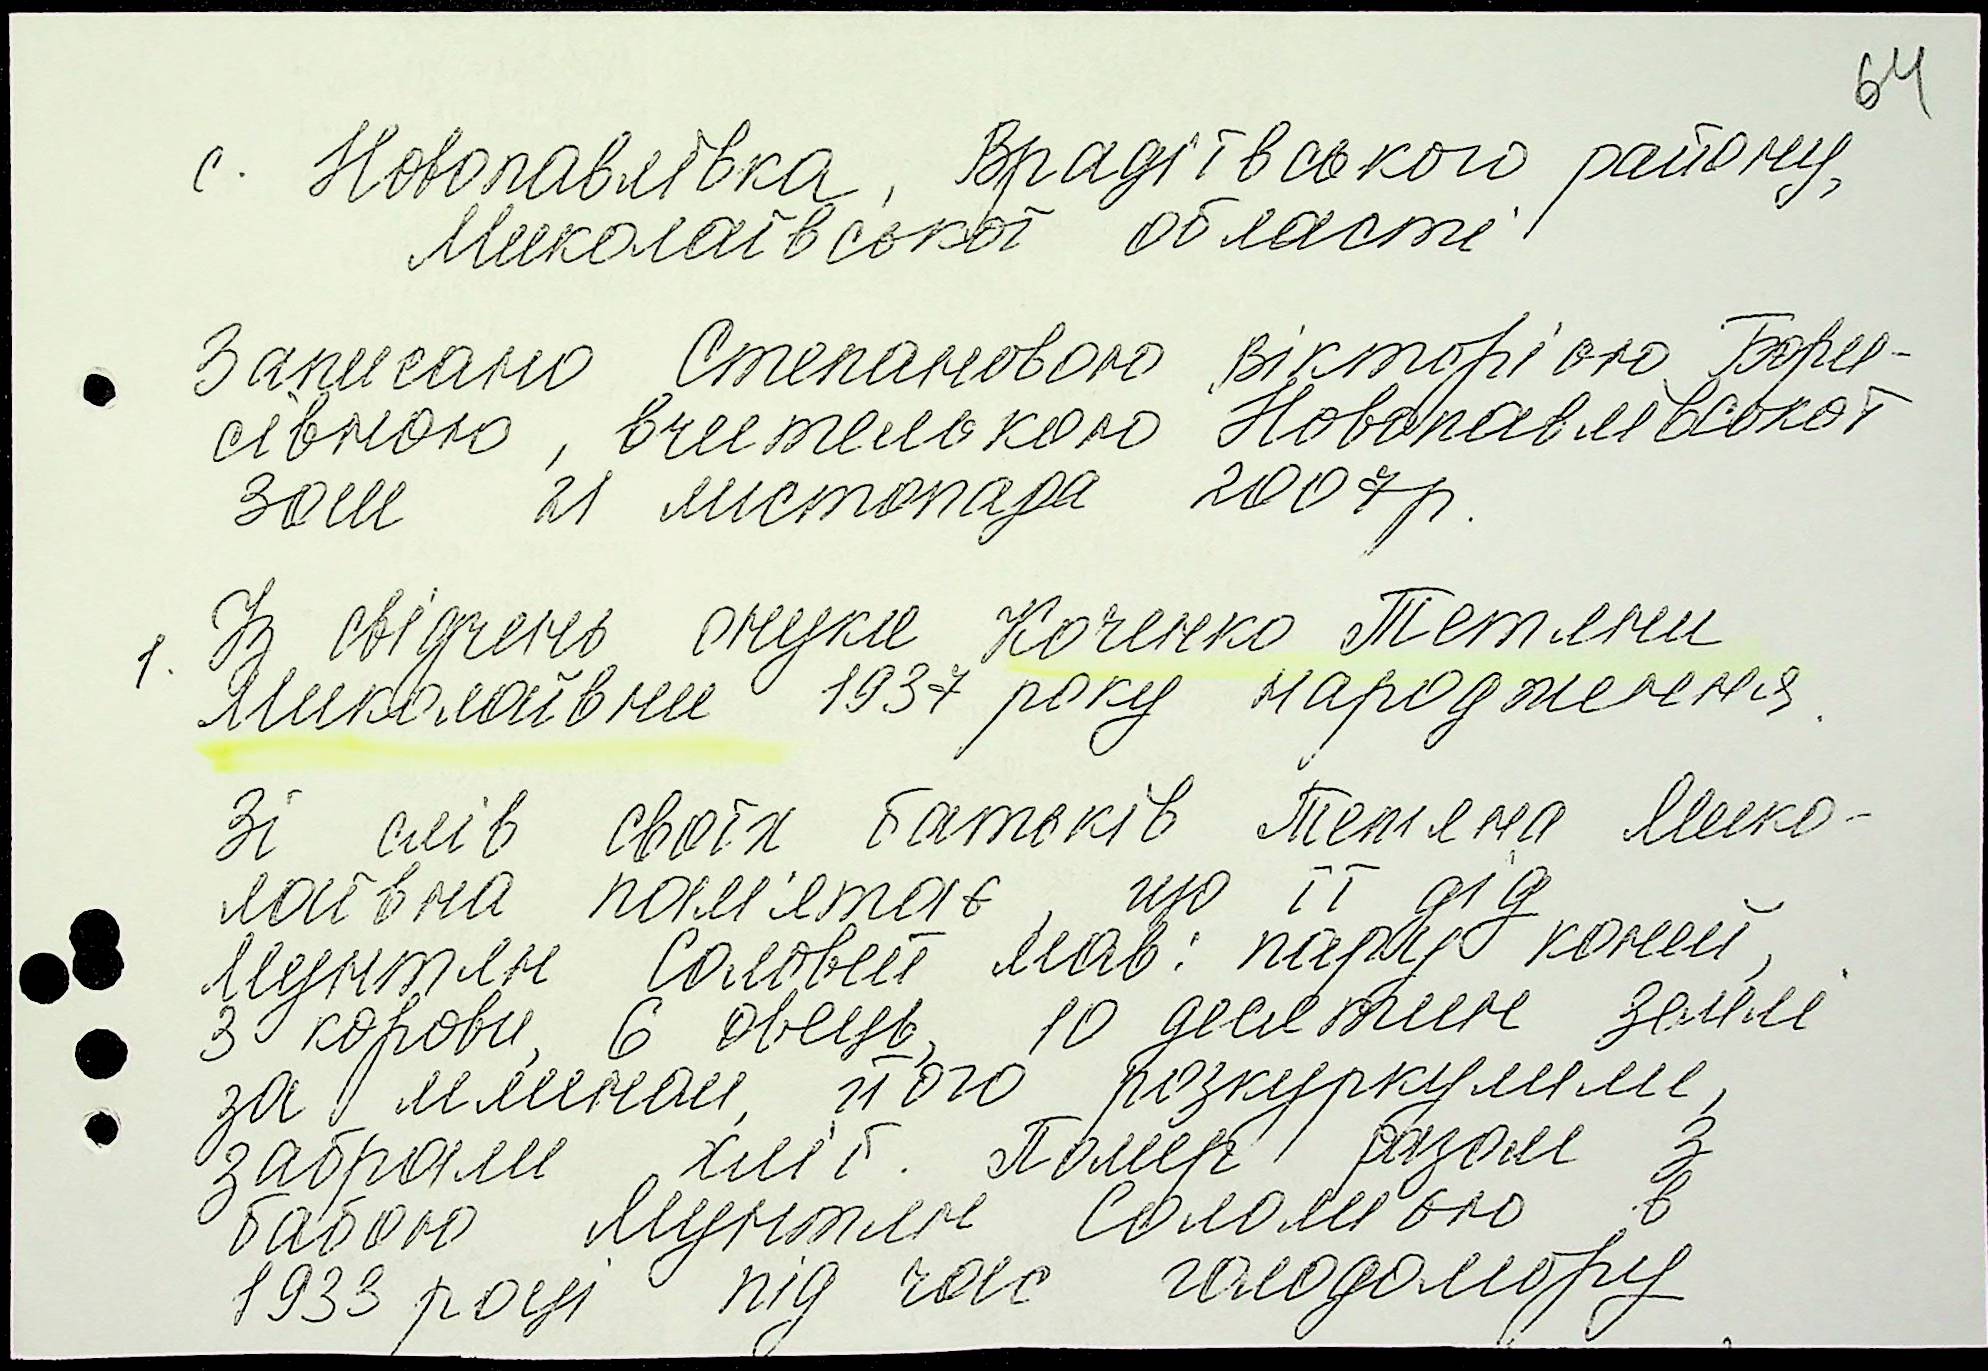 64
с. Новопавлівка, Врадіївського району,
Миколаївської області
Записано Степановою Вікторією Бори-
сівною, вчителькою Новопавлівської
ЗОШ 21 листопада 2007р.
1. Із свідчень онуки Коченко Тетяни
Миколаївни 1937 року народження.
Зі слів своїх батьків Тетяна Мико-
лаївна пам'ятає, що її дід
Мунтян Соловей мав: пару коней,
3 корови, 6 овець, 10 десятин землі
за млином, його розкуркулили,
забрали хліб. Помер разом з
бабою Мунтян Соломією в
1933 році під час голодомору